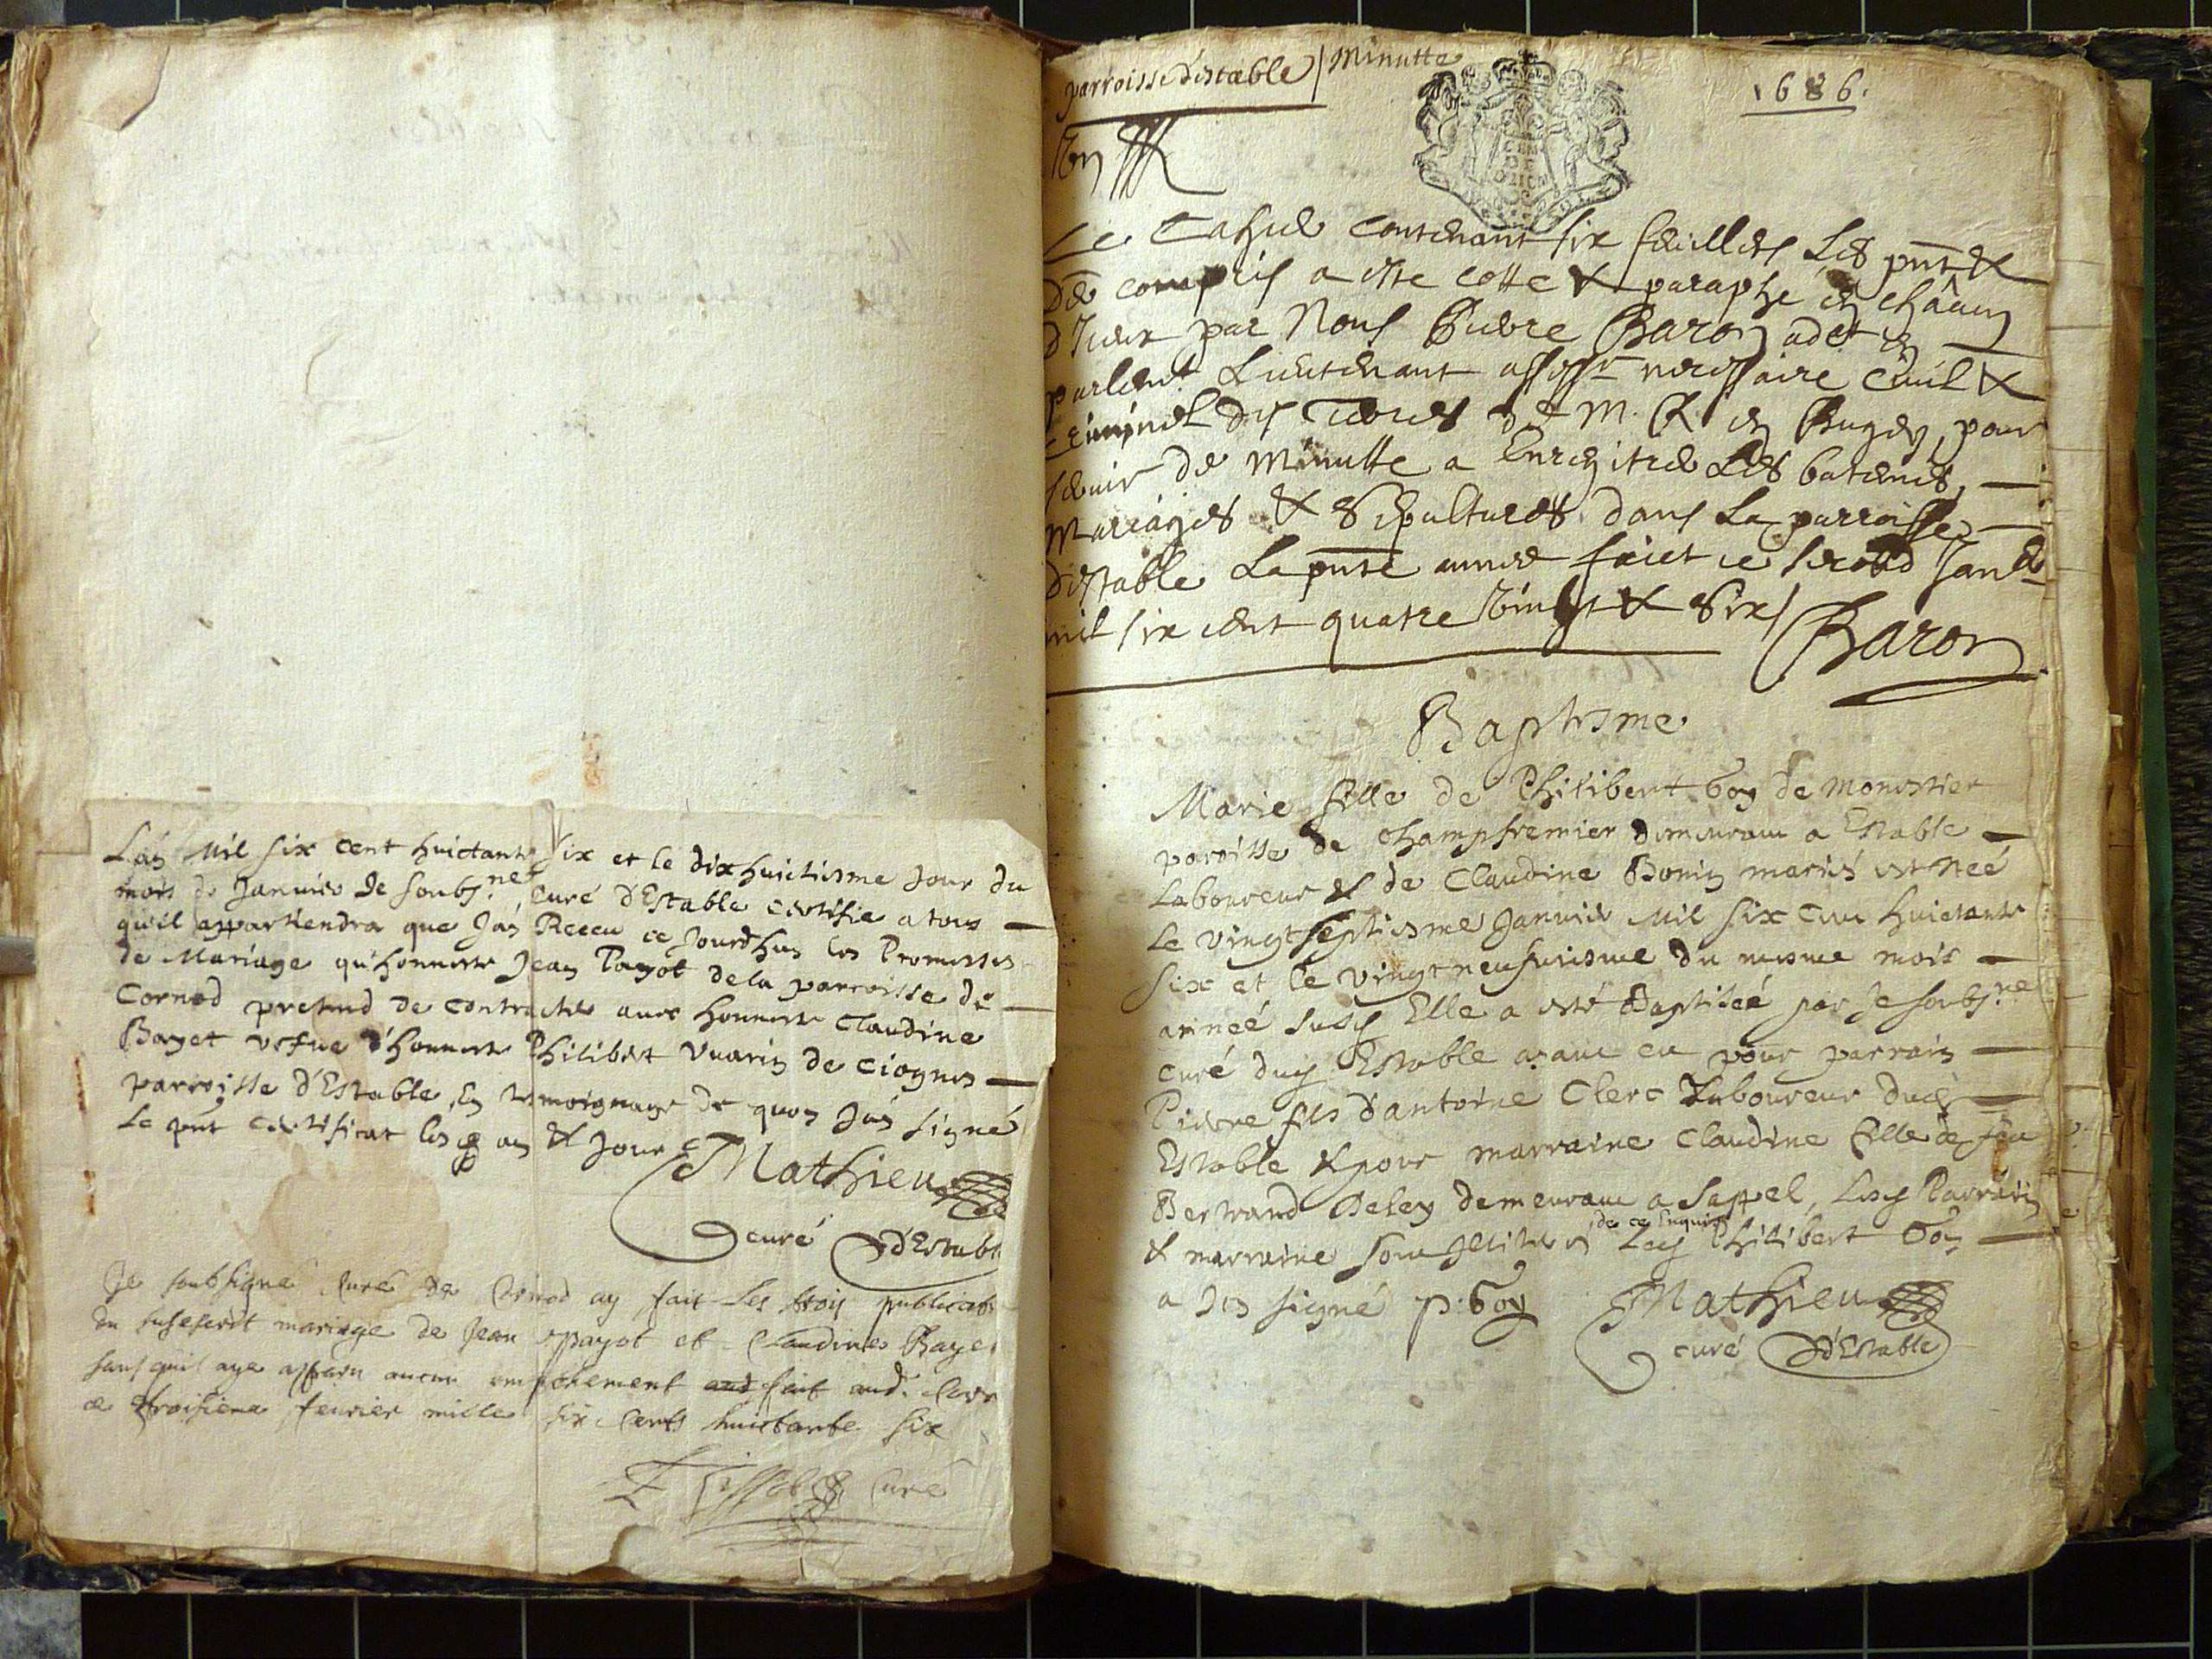 L'an Mil six cent huictante six et le dixhuictiesme Jour du
mois de Janvier Je soubs.né, curé d'Estable certifie a tous —
qu'il appartiendra que J'ay Receu ce jourdhuy les Promesses
de Mariage qu'honneste Jean Payot de la parroisse de —
Cornod pretend de contracter avec honneste Claudine
Bayet vefve d'honneste Philibert Vuarin de Ciognes —
parroisse d'Estable, En tesmoignage de quoy J'ay signé
Le pnt certificat les an & Jour
Mathieu
curé d'Estable
Je soubsigné Curé de Cornod ay fait les trois publicati
du susescrit mariage de Jean payot et Claudine Baye
sans quil aye apparu aucun empechement fait aud. Corn
ce troisieme fevrier mille six Cents huictante six
Tissot Curé
parroisse d'Estable / Minutte
1686.
Un
Ce Cahier contenant six feuillets Les pnt &
der compris a esté cotté & paraphé en châcun
d'Iceux par Nous Pierre Baron adct en
parlent Lieutenant assessr necessaire Civil &
criminel des Terres de M. R en Bugey, pour
servir de Minutte a Enregitrer Les batemes, —
Mariages & Sepultures dans La parroisse —
d'Estable La pnte année faict ce second Janer
mil six cent quatre Vingt & Six /
Baron
Baptesme
Marie fille de Philibert Goy de Monestier
paroisse de Champfremier demeurant a Estable —
Laboureur & de Claudine Bonin mariés est neé
Le vingt septiesme Janvier Mil six cent huictante
Six et le vingt neufviesme du mesme mois —
anneé susd Elle a esté Baptiseé par Je soubs.né
curé dud Estable ayant eu pour parrain —
Pierre fils d'antoine Clerc Laboureur dud —
Estable & pour marraine Claudine fille de feu
Bertrand Beley demeurant a Sappel, Lesd Parrain
& marraine sont Illiteres de ce Enquis Led Philibert Goy —
a Icy signé p. Goy
Mathieu
curé d'Estable